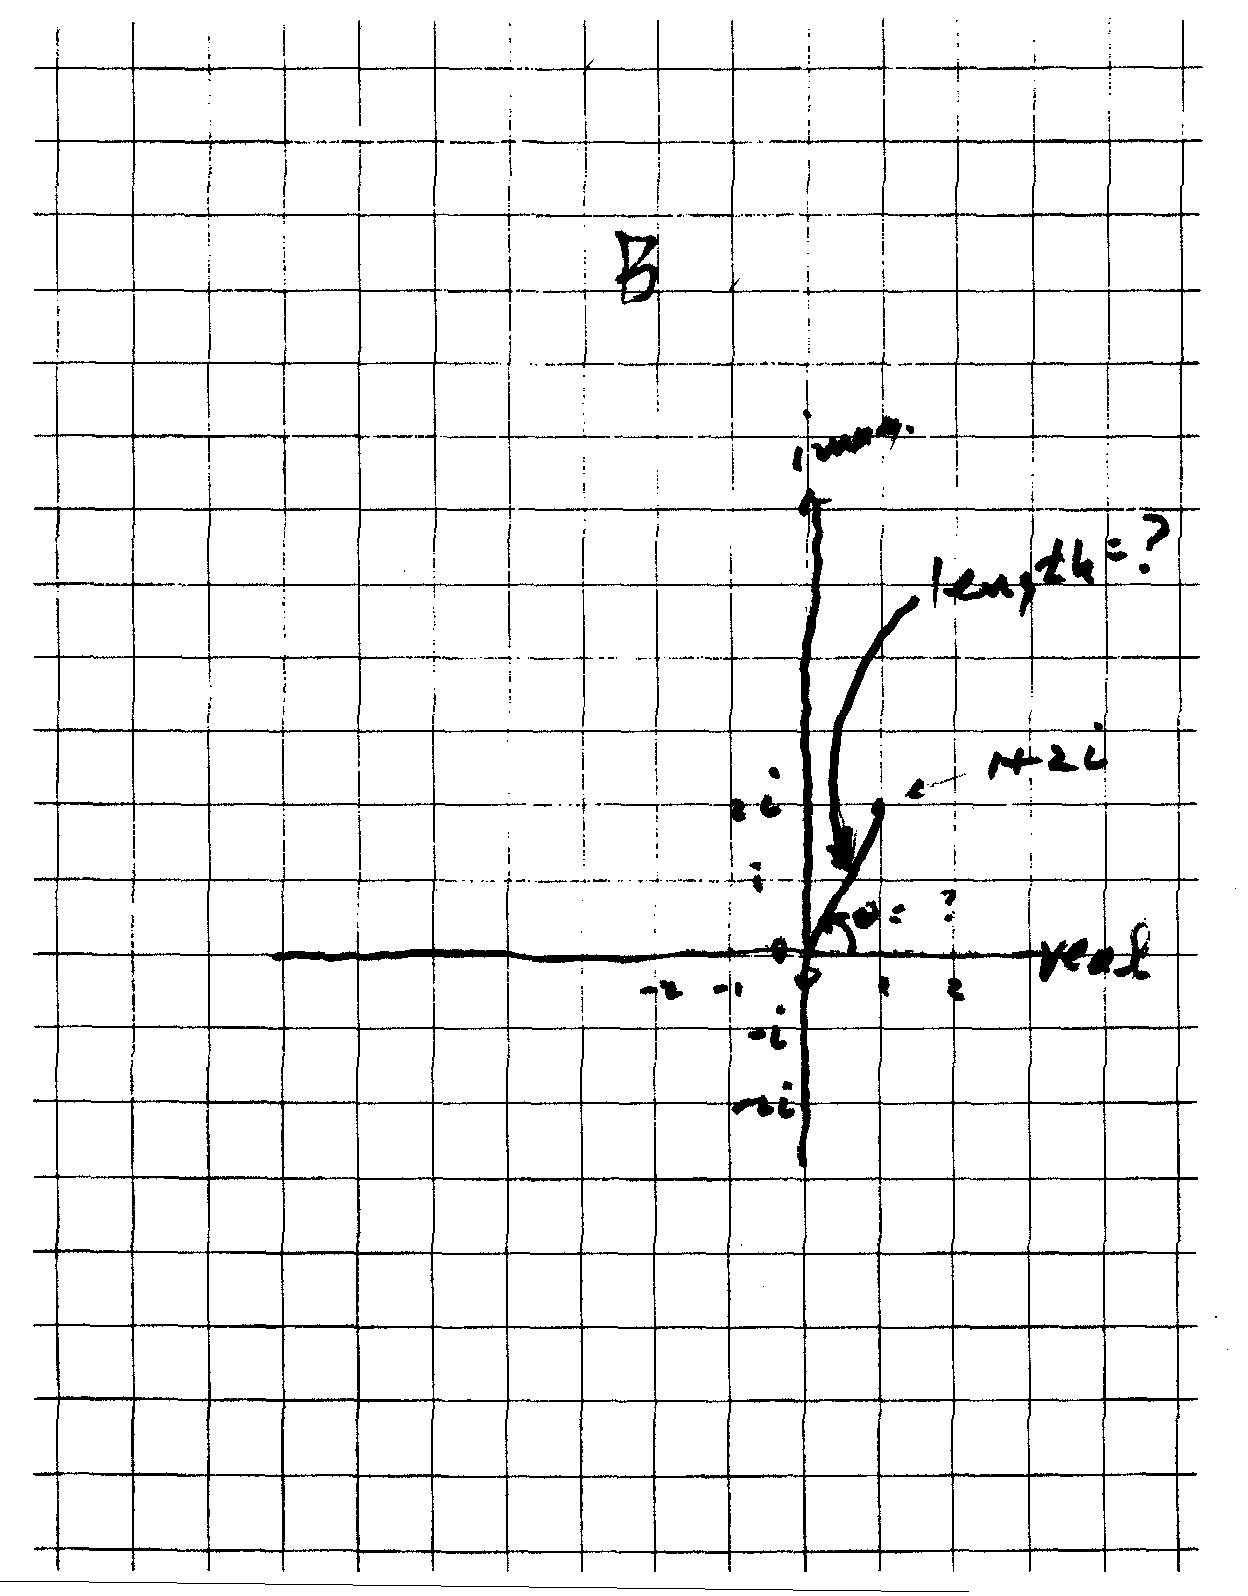 B
imag.
length = ?
1+2i
2i
i
θ = ?
0 real
-2 -1 0 1 2
-i
-2i